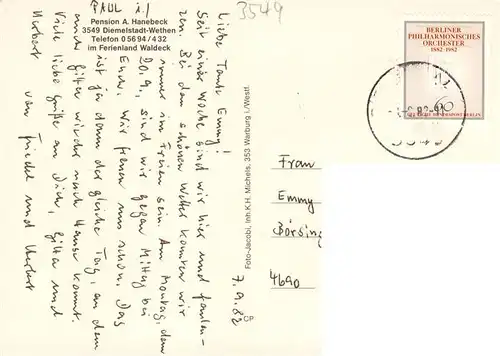 PAUL
3549
Pension A. Hanebeck
3549 Diemelstadt-Wethen
Telefon 0 56 94 / 4 32
im Ferienland Waldeck
7.9.82
Liebe Tante Emmy!
Seit einer Woche sind wir hier und faulen-
zen. Bei dem schönen Wetter konnten wir
immer im Freien sein. Am Montag, dem
20.9., sind wir gegen Mittag bei
Euch. Wir freuen uns schon. Das
ist ja dann der gleiche Tag, an dem
auch Gitta wieder nach Hause kommt.
Viele liebe Grüße an Dich, Gitta und
Herbert
von Friedel und Herbert
Foto-Jacobi, Inh. K.H. Michels, 353 Warburg i./Westf.
CP
BERLINER
PHILHARMONISCHES
ORCHESTER
1882-1982
60
DEUTSCHE BUNDESPOST BERLIN
Frau
Emmy
Börsing
4690